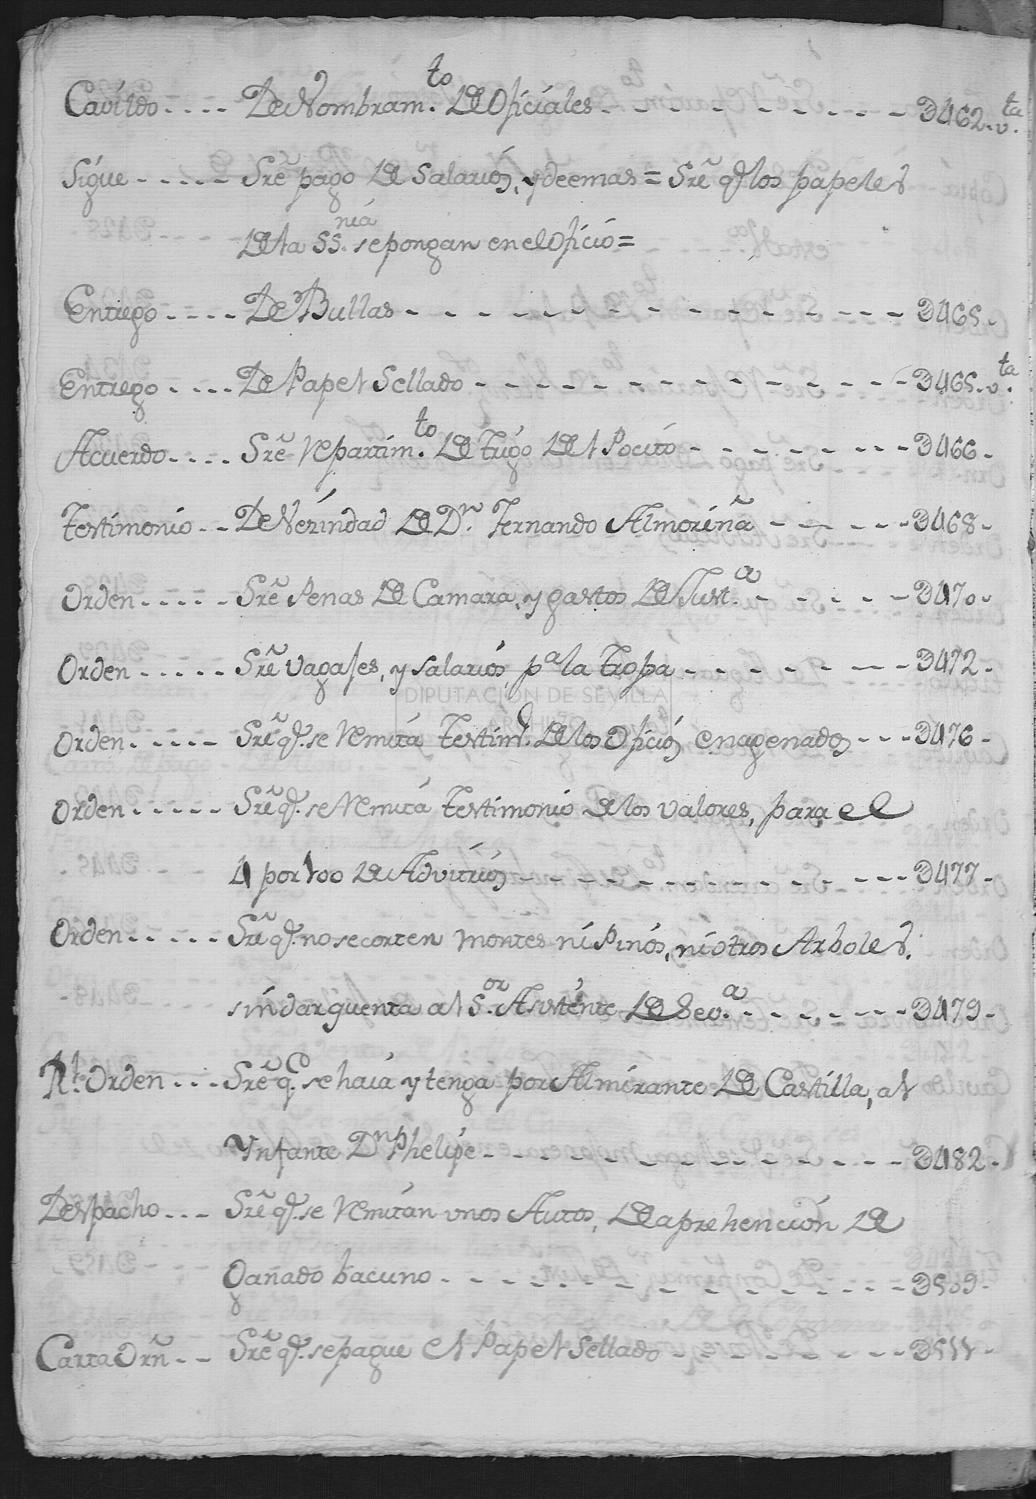 Cavildo .... De Nombram.to De Oficiales - - - - - - - - - - Ɔ462.v.ta
Sigue - - - - - Sr̃e pago De Salarios, y deemas = Sr̃e q.e los papeles
De ta SS.nia se pongan en el Oficio =
Entrego - . . . . De Bullas - - - - - - - - - - - - - - Ɔ465.
Entrego . . . . De Papel Sellado - - - - - - - - - - - - Ɔ465.v.ta
Acuerdo . . . . Sr̃e Repartim.to De Trigo Del Pocito - - - - - - - Ɔ466.
Testimonio . . De Vezindad De D.n Fernando Almoriña - - - - - Ɔ468.
Orden . . . . . Sr̃e Penas De Camara, y gastos De Just.a - - - - - - Ɔ470.
Orden . . . . . Sr̃e vagajes, y salarios p.a la Tropa - - - - - - - Ɔ472.
DIPUTACIÓN DE SEVILLA
ARCHIVO
Orden . . . . . Sr̃e q.e se Remita Testim.o De los Oficios enagenados - - - Ɔ476.
Orden . . . . . Sr̃e q.e se Remita Testimonio De los valores, para el
4 por 100 De Advitrios - - - - - - - - - - - - Ɔ477.
Orden . . . . . Sr̃e q.e no se corten montes ni Pinos, ni otros Arboles,
sin dar quenta al S.or Asistente De Sev.a - - - - - - - Ɔ479.
R.l Orden . . . Sr̃e q.e se haia y tenga por Almirante De Castilla, al
Ynfante D.n Phelipe - - - - - - - - - - - - - Ɔ482.
Despacho . . . Sr̃e q.e se Remitan unos Autos, De aprehencion De
Ganado bacuno - - - - - - - - - - - - - - Ɔ509.
Carta Orñ - - Sr̃e q.e se pague el Papel Sellado - - - - - - - Ɔ511.